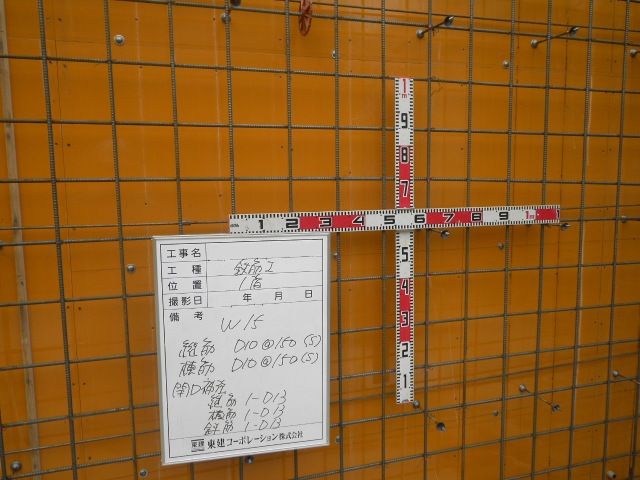 工事名
工種 鉄筋工
位置 1階
撮影日 年 月 日
備考
W15
縦筋 D10@150(S)
横筋 D10@150(S)
開口補強
縦筋 1-D13
横筋 1-D13
斜筋 1-D13
東建コーポレーション株式会社
1 2 3 4 5 6 7 8 9 1m 1
1m
9
8
7
5
4
3
2
1